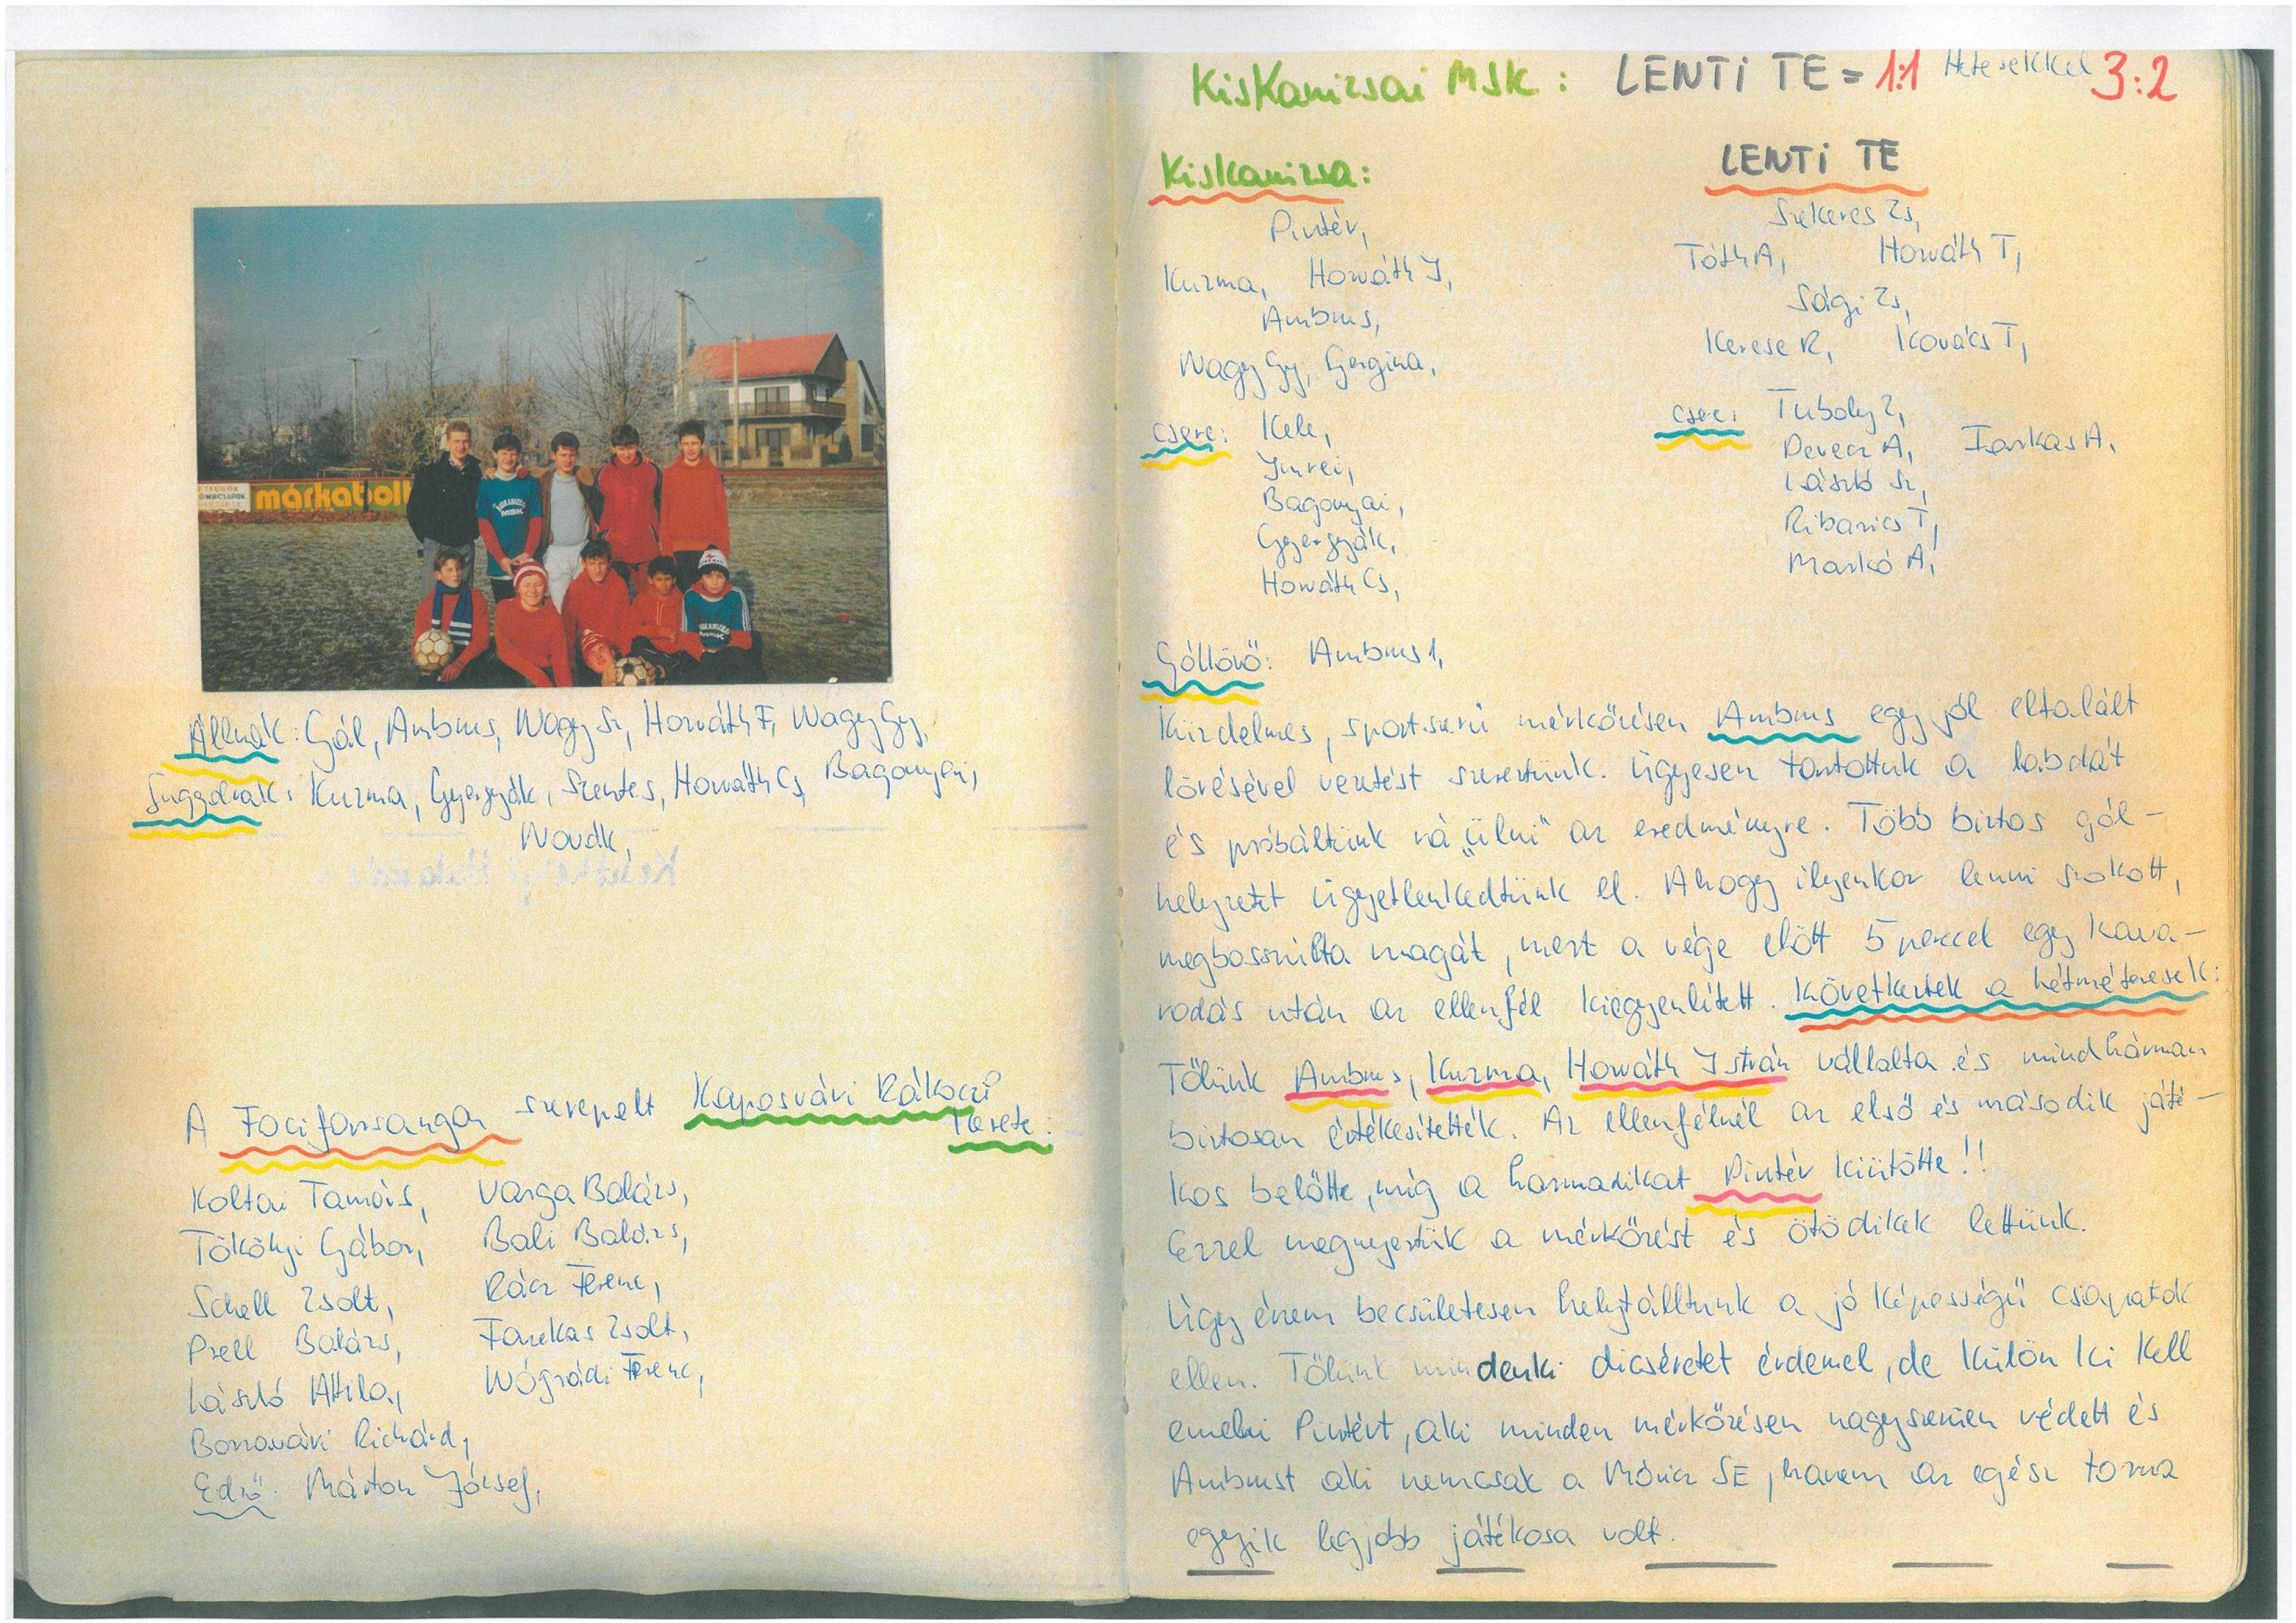 márkabolt
MSK
Állnak: Gál, Ambrus, Nagy Sz, Horváth F, Nagy Gy,
Guggolnak: Kuzma, Gyergyák, Szentes, Horváth Cs, Bagonyai,
Novák,
A Focifarsangon szerepelt Kaposvári Rákóczi
kerete:
Koltai Tamás, Varga Balázs,
Tökölyi Gábor, Bali Balázs,
Schell Zsolt, Rácz Ferenc,
Prell Balázs, Fazekas Zsolt,
László Attila, Nógrádi Ferenc,
Borzavári Richárd,
Edző: Márton József,
Kiskanizsai MSK : LENTI TE = 1:1 Hetesekkel 3:2
Kiskanizsa: LENTI TE
Pintér, Szekeres Zs,
Kuzma, Horváth I, Tóth A, Horváth T,
Ambrus, Sági Zs,
Nagy Gy, Gergina, Kerese R, Kovács T,
csere: Kele, csere: Tuboly Z,
Imrei, Devecz A, Farkas A,
Bagonyai, László Sz,
Gyergyák, Ribarics T,
Horváth Cs, Markó A,
Góllövő: Ambrus 1,
Küzdelmes, sportszerű mérkőzésen Ambrus egy jól eltalált
lövésével vezetést szereztünk. Ügyesen tartottuk a labdát
és próbáltunk rá „ülni" az eredményre. Több biztos gól-
helyzetet ügyetlenkedtünk el. Ahogy ilyenkor lenni szokott,
megbosszulta magát, mert a vége előtt 5 perccel egy kava-
rodás után az ellenfél kiegyenlített. Következtek a hétméteresek:
Tőlünk Ambrus, Kuzma, Horváth István vállalta és mindhárman
biztosan értékesítették. Az ellenfélnél az első és második játé-
kos belőtte, míg a harmadikat Pintér kiütötte!!
Ezzel megnyertük a mérkőzést és ötödikek lettünk.
Úgy érzem becsületesen helytálltunk a jó képességű csapatok
ellen. Tőlünk mindenki dicséretet érdemel, de külön ki kell
emelni Pintért, aki minden mérkőzésen nagyszerűen védett és
Ambrust aki nemcsak a Móricz SE, hanem az egész torna
egyik legjobb játékosa volt.